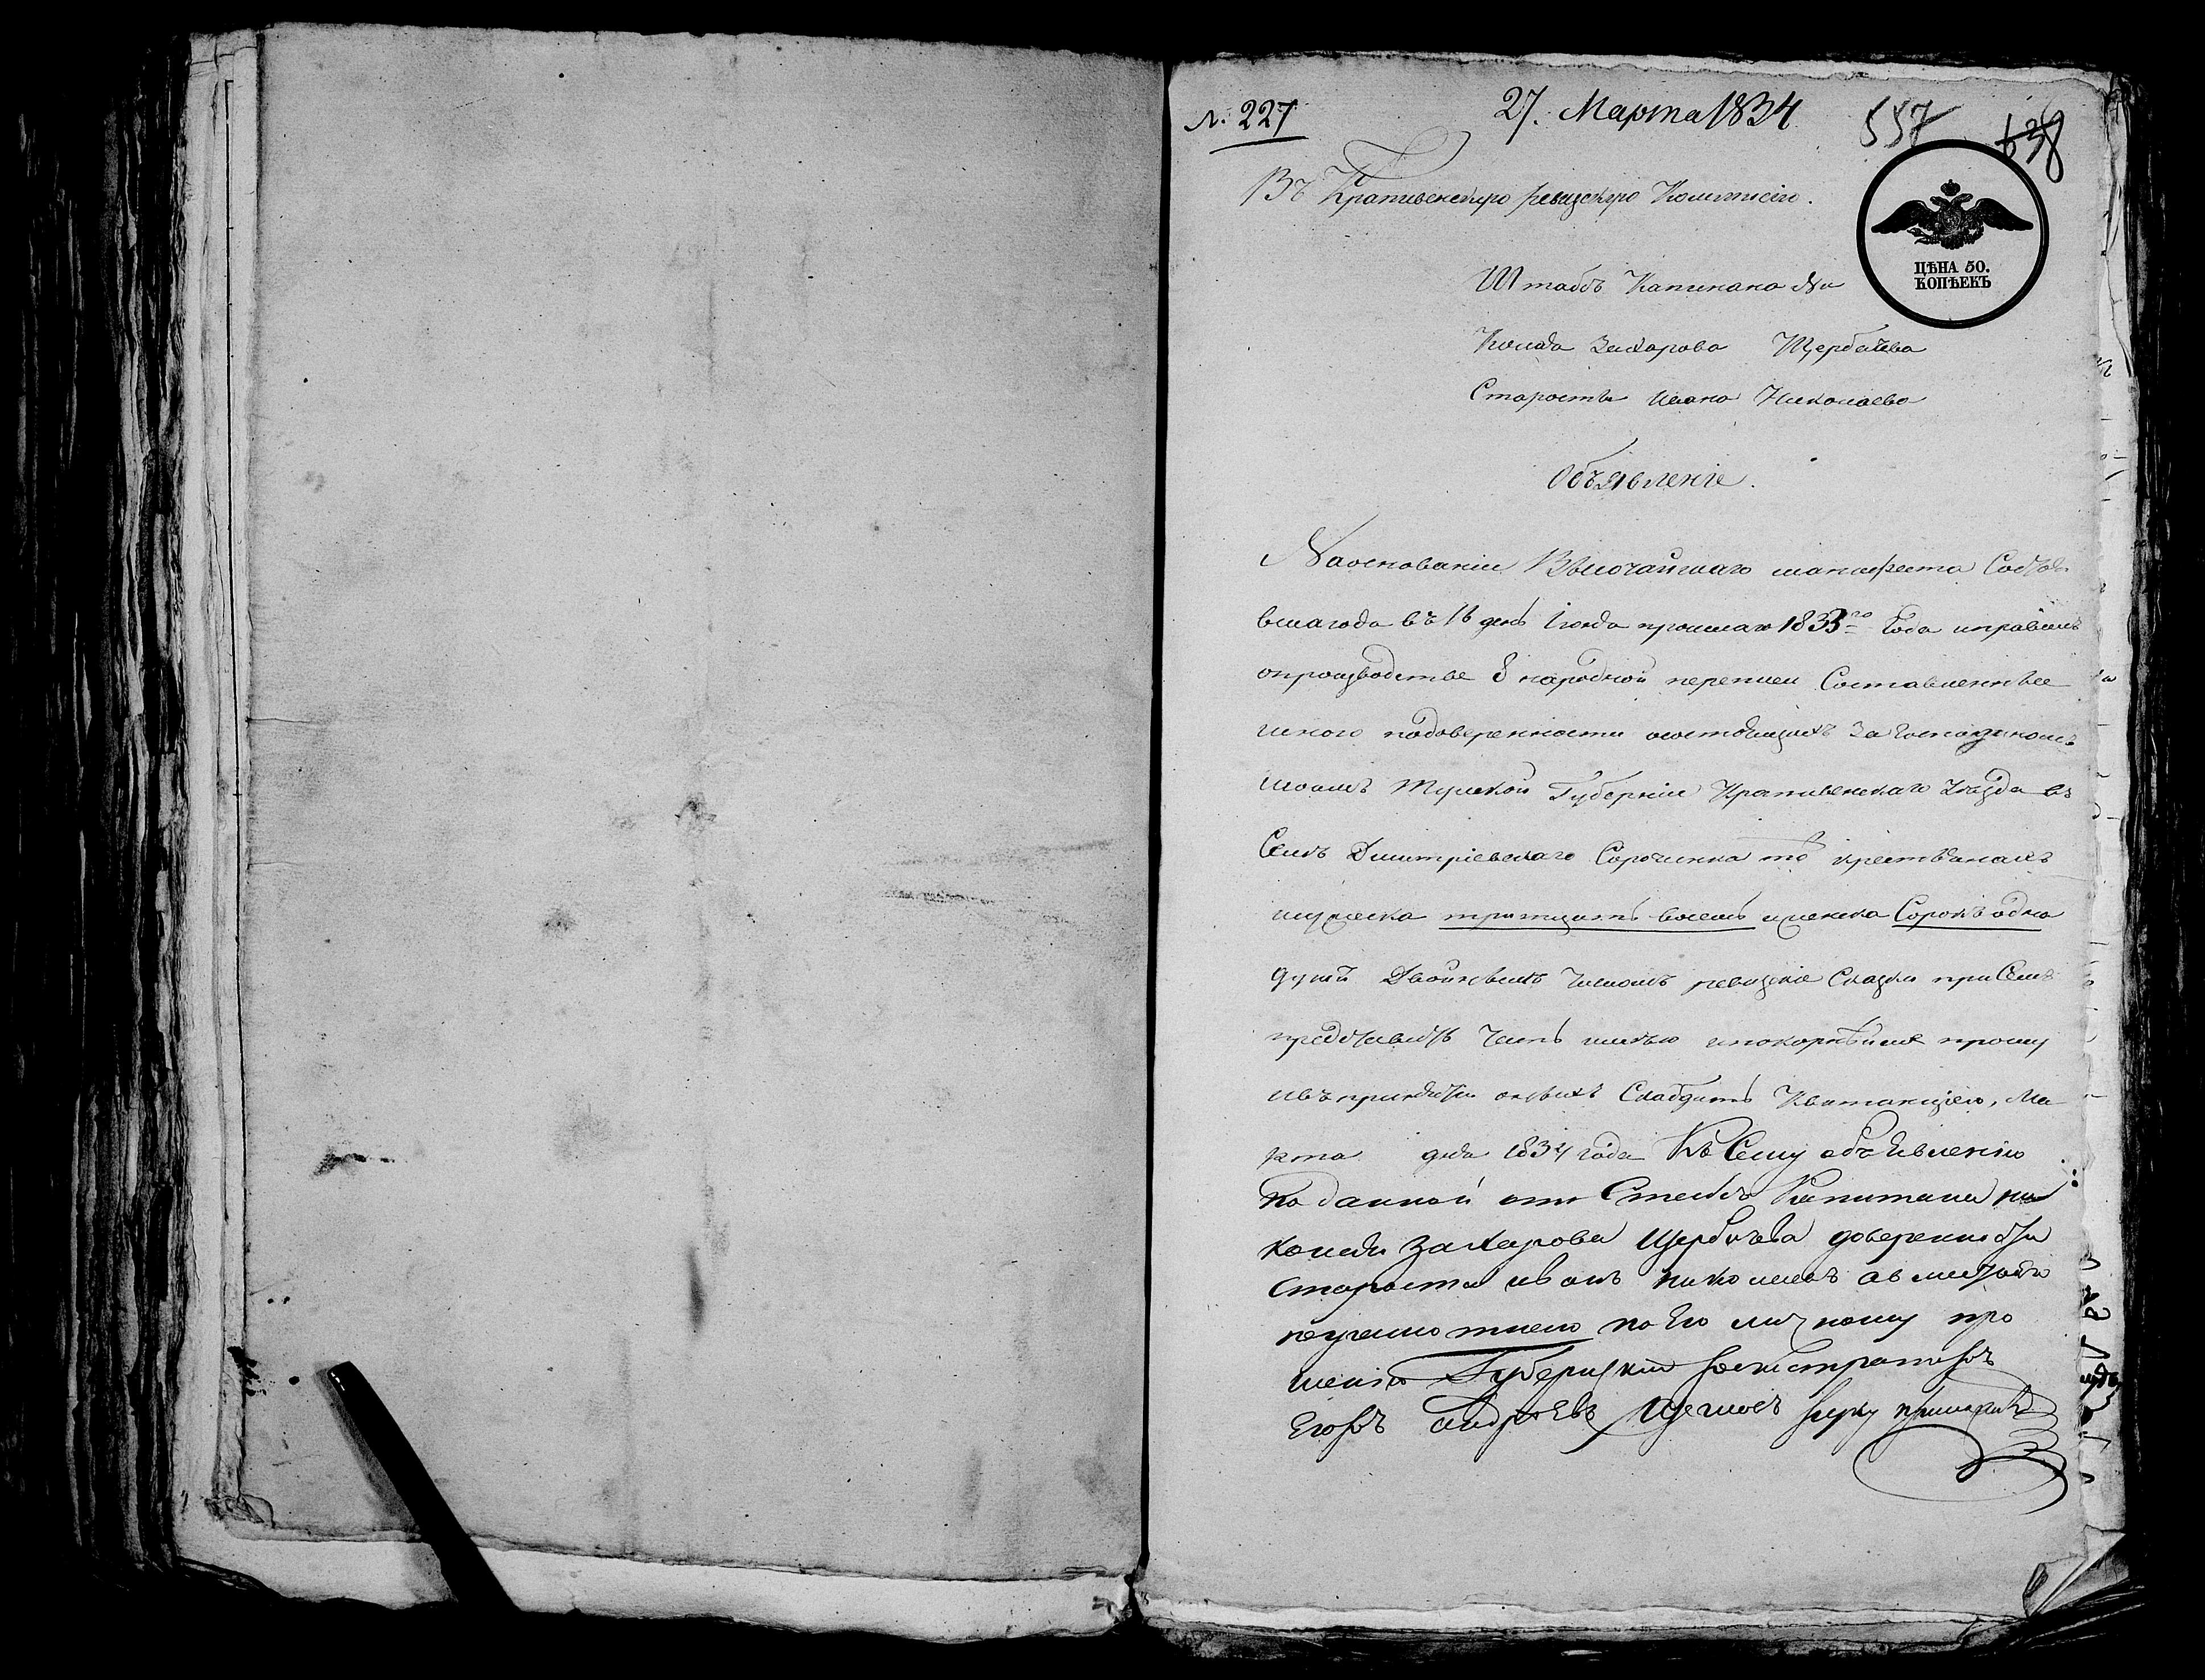 № 227
27. Марта 1834
557
638
Въ Крапивенскую ревизскую Комисію.
ЦѢНА 50.
КОПѢЕКЪ
Штабсъ Капитана Ни
колая Захарова Щербачева
Старосты Ивана Николаева
Объявленіе.
На основаніи Высочайшаго манифеста Состояв
вшагося въ 16 день Іюня прошлаго 1833го Года и правилъ
опроизводстве 8 народной переписи Составленные
мною подоверенности о состоящихъ За Господиномъ
моимъ Тульской Губерніи Крапивенскаго Уезда въ
Селѣ Дмитріевскаго Сорочинка то крестьянахъ
мужеска тритцать восемь и женска Сорокъ одна
душъ Двойнымъ Числомъ ревизскіе Сказки при Семъ
представить Честь имѣю и покорнѣйше прошу
и въ принятіи оныхъ Снабдить Квитанціею, Ма
рта дня 1834 года Къ Сему объЕвленію
по данной отъ Стабсъ Капитана ни
колая Захарова Щербачева доверенности
староста иванъ николаевъ а вместо
неграмотнаго по Его личному про
шенію Губернскій регистраторъ
Егоръ Андреевъ руку приложилъ